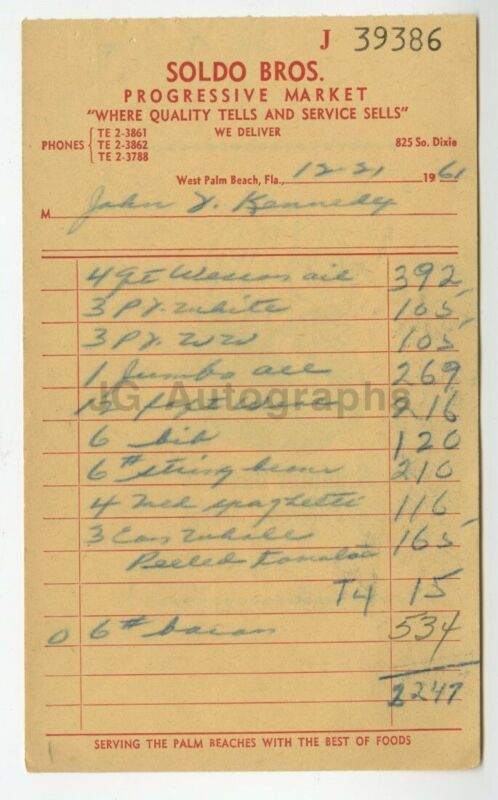 J 39386
SOLDO BROS.
PROGRESSIVE MARKET
"WHERE QUALITY TELLS AND SERVICE SELLS"
WE DELIVER
PHONES { TE 2-3861
TE 2-3862
TE 2-3788
825 So. Dixie
West Palm Beach, Fla., 12-21 1961
M John F. Kennedy
4 qt Wesson oil 392
3 Pt. White 105
3 Pt. WW 105
1 Jumbo all 269
12 216
6 bib 120
6# string beans 210
4 med spaghetti 116
3 Can Whole 165
Peeled tomatoes
T4 15
0 6# bacon 534
2247
SERVING THE PALM BEACHES WITH THE BEST OF FOODS
JG Autographs